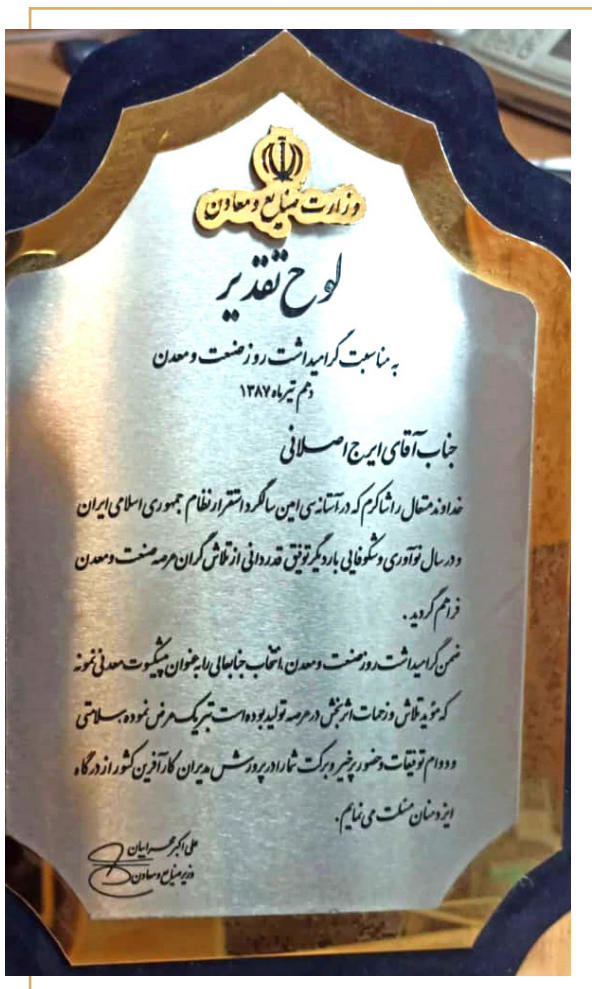 وزارت صنایع و معادن
لوح تقدیر
به مناسبت گرامیداشت روز صنعت و معدن
دهم تیرماه ۱۳۸۷
جناب آقای ایرج اصلانی
خداوند متعال را شاکرم که در آستانه‌ی امین سالگرد استقرار نظام جمهوری اسلامی ایران
و در سال نوآوری و شکوفایی بار دیگر توفیق قدردانی از تلاش گران عرصه صنعت و معدن
فراهم گردید.
ضمن گرامیداشت روز صنعت و معدن، انتخاب جنابعالی را به عنوان پیشکسوت معدنی نمونه
که موید تلاش و زحمات اثربخش در عرصه تولید بوده است تبریک عرض نموده، سلامتی
و دوام توفیقات و حضور پرخیر و برکت شما را در پرورش مدیران کارآفرین کشور از درگاه
ایزد منان مسئلت می نمایم.
علی اکبر محرابیان
وزیر صنایع و معادن